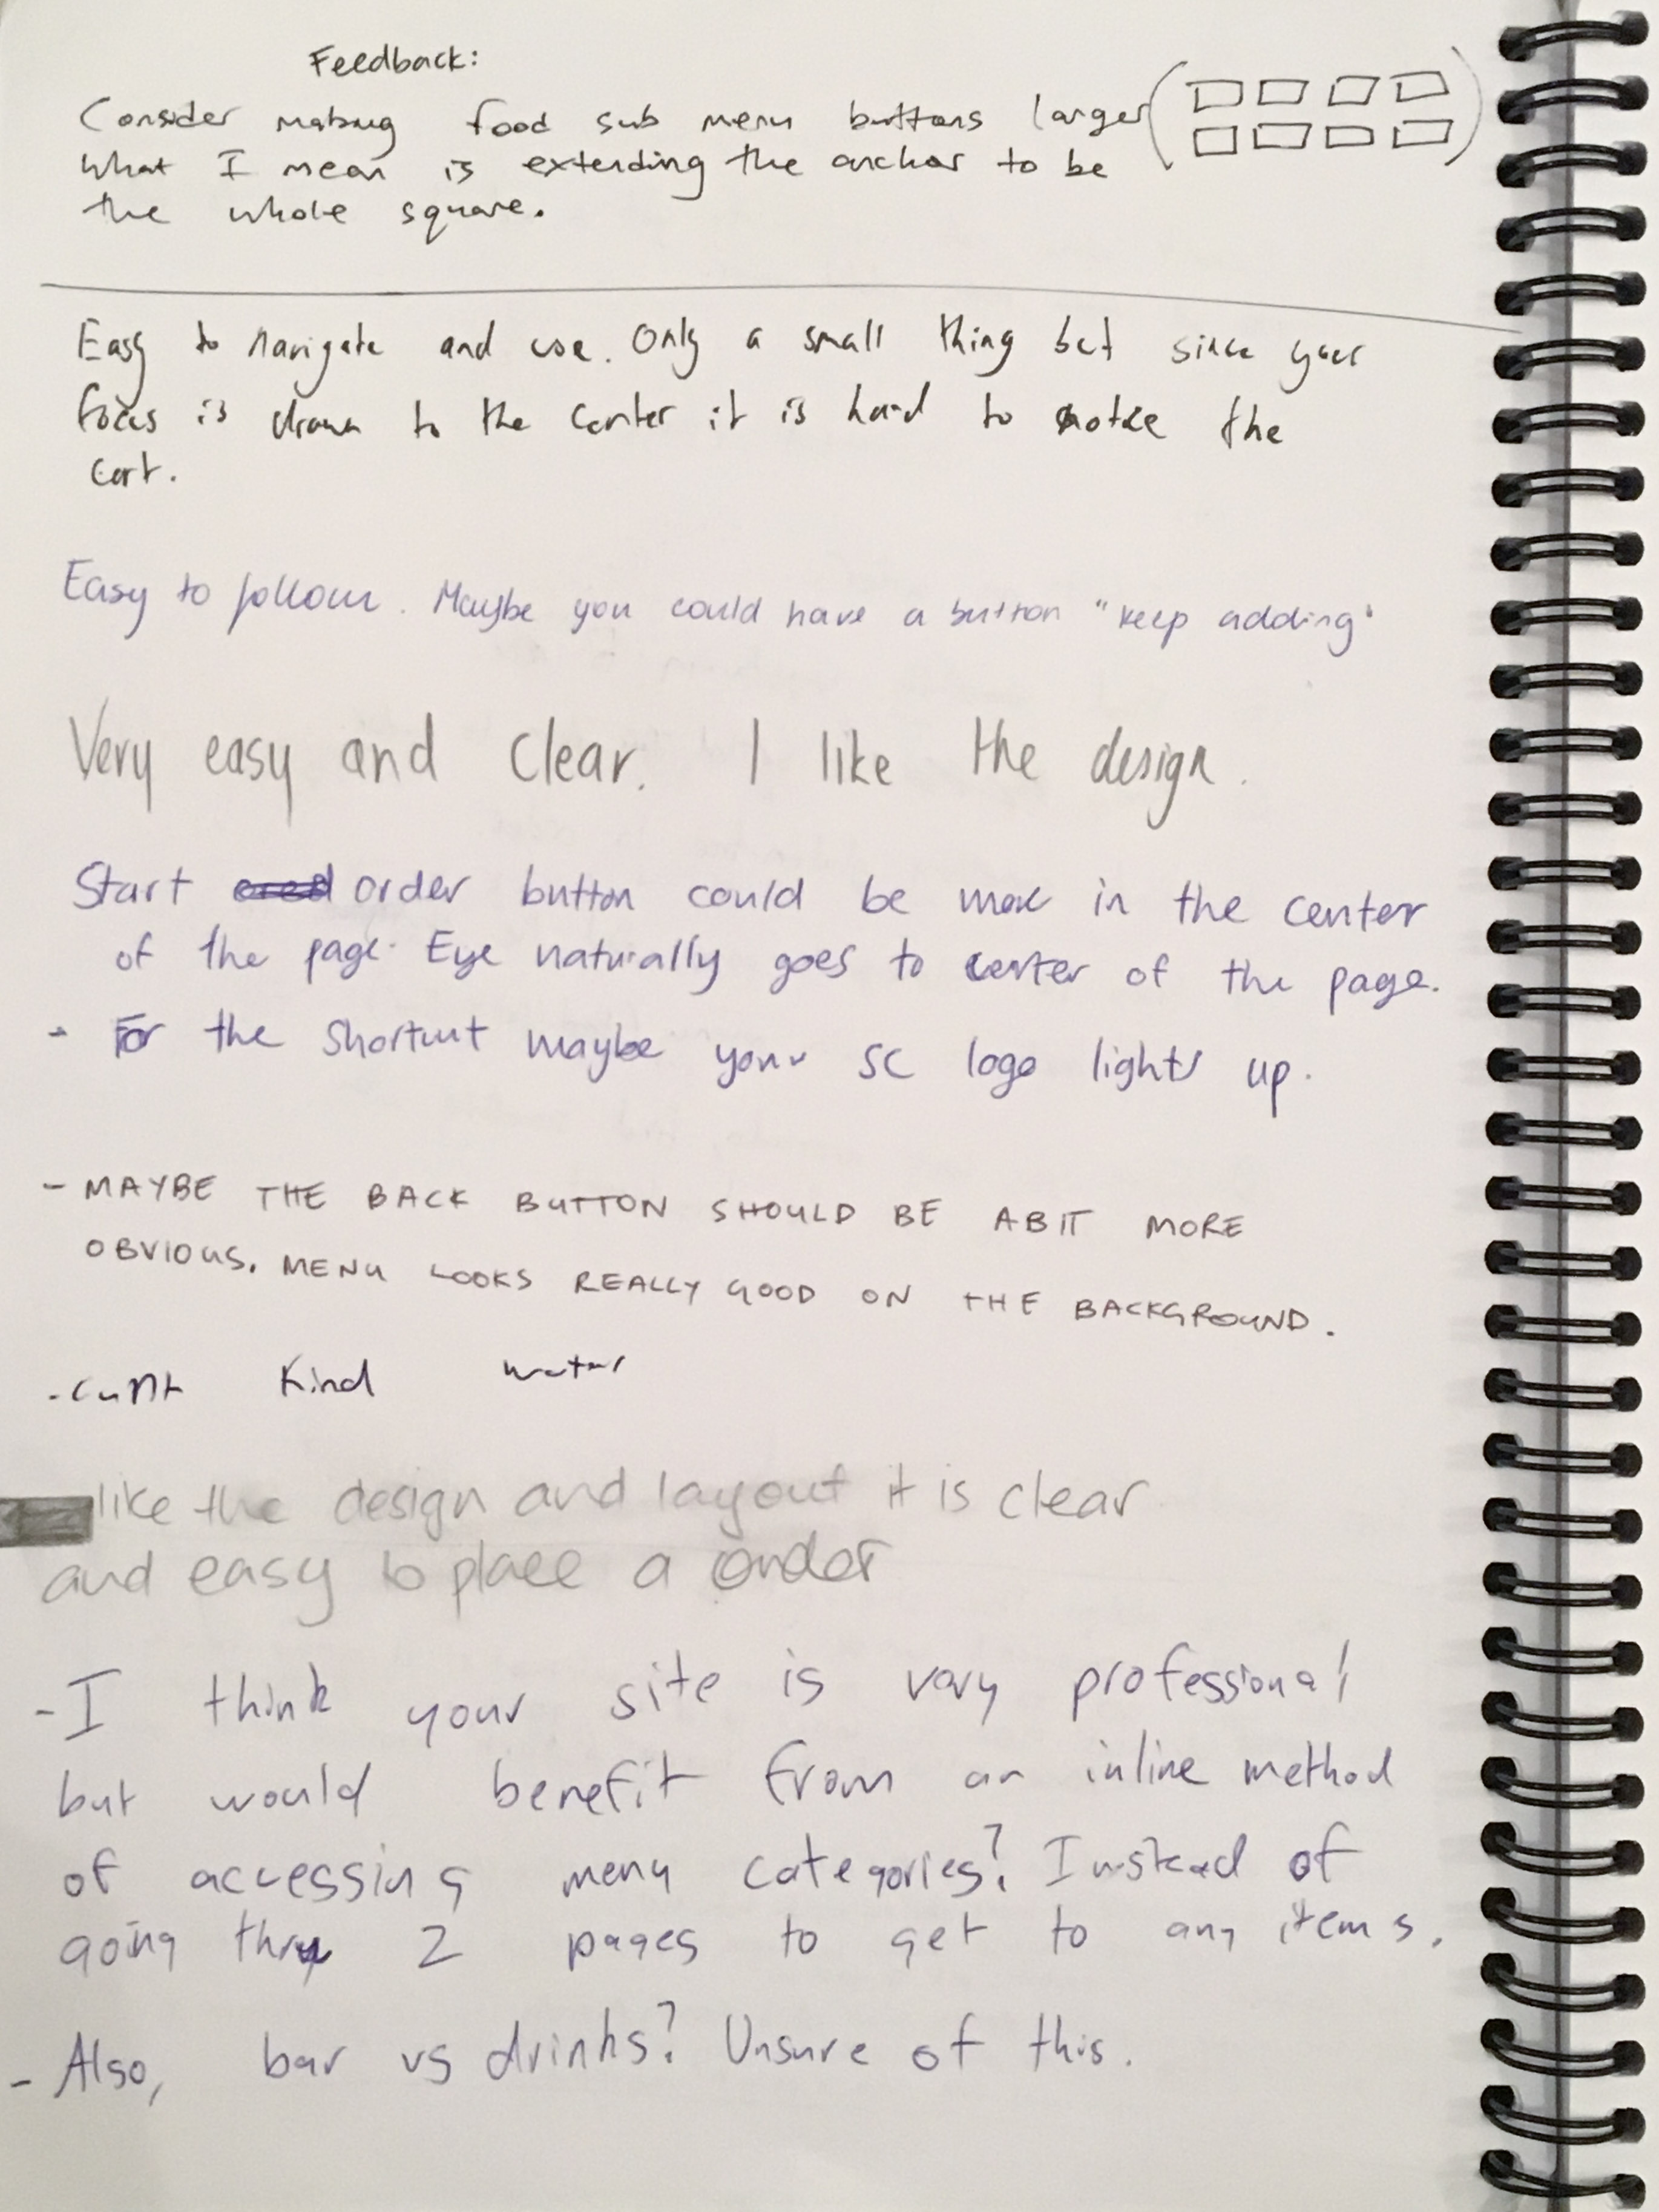 Feedback:
Consider making food sub menu buttons larger
What I mean is extending the anchor to be
the whole square.
Easy to navigate and use. Only a small thing but since your
focus is drawn to the center it is hard to notice the
cart.
Easy to follow. Maybe you could have a button "keep adding"
Very easy and clear. I like the design.
Start order button could be more in the center
of the page. Eye naturally goes to center of the page.
- For the shortcut maybe your SC logo lights up.
- MAYBE THE BACK BUTTON SHOULD BE ABIT MORE
OBVIOUS. MENU LOOKS REALLY GOOD ON THE BACKGROUND.
- Kind water
like the design and layout it is clear
and easy to place a order
- I think your site is very professional
but would benefit from an inline method
of accessing menu categories? Instead of
going thru 2 pages to get to any items.
- Also, bar vs drinks? Unsure of this.